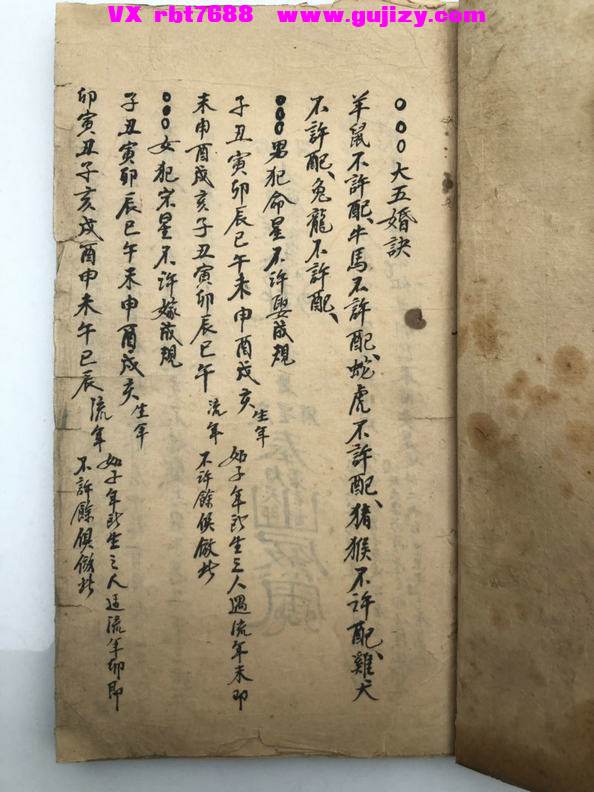 VX rbt7688 www.gujizy.com
○○○大五婚訣
羊鼠不許配、牛馬不許配、蛇虎不許配、猪猴不許配、雞犬
不許配、兔龍不許配、
○○○男犯命星不許娶成規
子丑寅卯辰巳午未申酉戌亥生年 如子年所生之人遇流年未即
未申酉戌亥子丑寅卯辰巳午流年 不許餘俱倣此
○○○女犯宗星不許嫁成規
子丑寅卯辰巳午未申酉戌亥生年 如子年所生之人逢流年卯即
卯寅丑子亥戌酉申未午巳辰流年 不許餘俱倣此